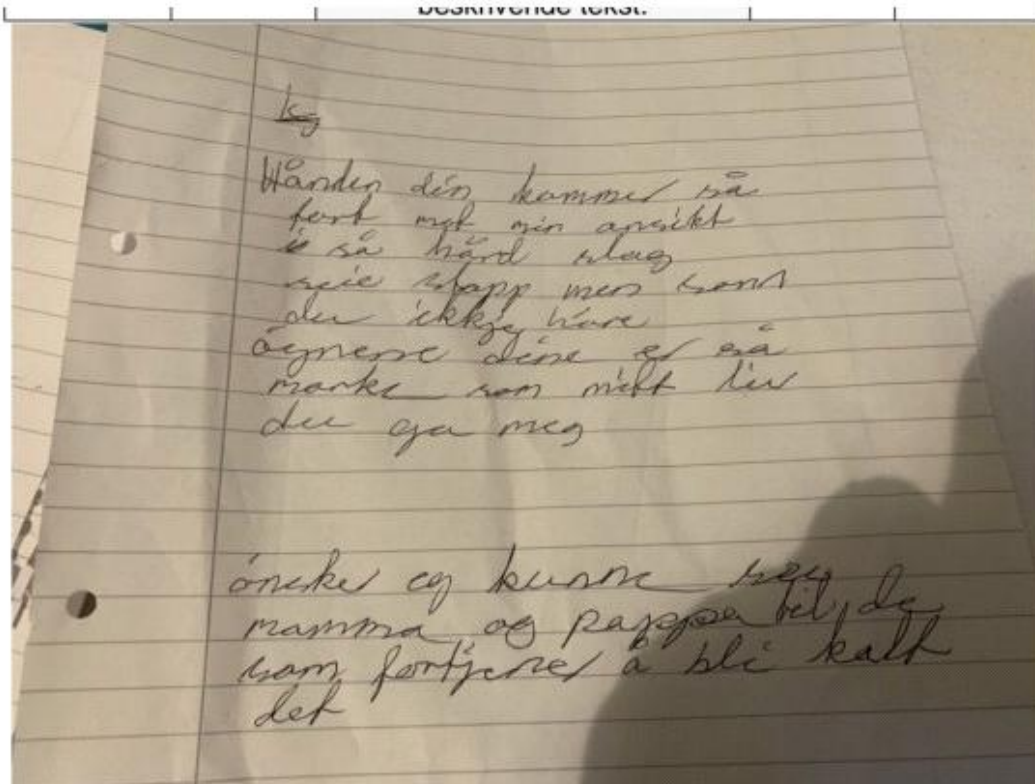 beskrivende tekst.
Hånden din kommer så
fort mot min ansikt
så hård slag
seie stopp men sann
du ikkje høre
øynene dine er så
mørke som mitt liv
du ga meg
ønsker eg kunne sei
mamma og pappa til de
som fortjener å bli kalt
det